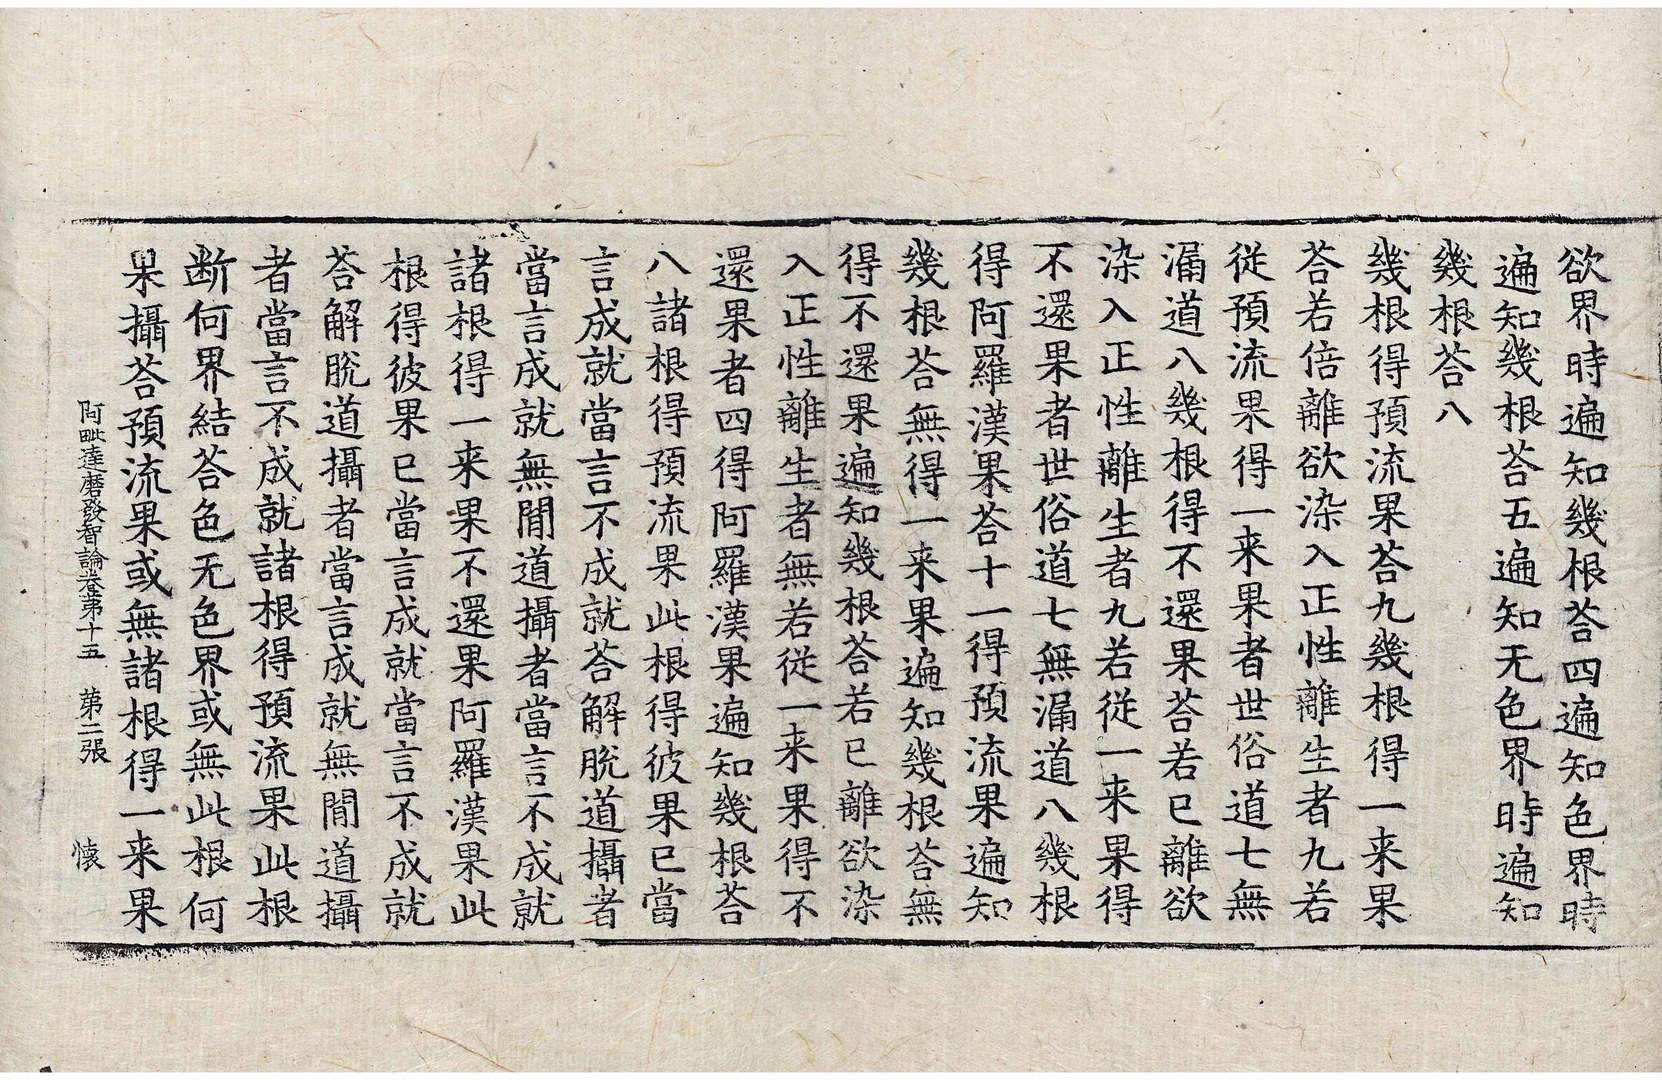 欲界時遍知幾根荅四遍知色界時
遍知幾根荅五遍知无色界時遍知
幾根荅八
幾根得預流果荅九幾根得一来果
荅若倍離欲染入正性離生者九若
從預流果得一来果者世俗道七無
漏道八幾根得不還果荅若已離欲
染入正性離生者九若從一来果得
不還果者世俗道七無漏道八幾根
得阿羅漢果荅十一得預流果遍知
幾根荅無得一来果遍知幾根荅無
得不還果遍知幾根荅若已離欲染
入正性離生者無若從一来果得不
還果者四得阿羅漢果遍知幾根荅
八諸根得預流果此根得彼果已當
言成就當言不成就荅解脫道攝者
當言成就無間道攝者當言不成就
諸根得一来果不還果阿羅漢果此
根得彼果已當言成就當言不成就
荅解脫道攝者當言成就無間道攝
者當言不成就諸根得預流果此根
断何界結荅色无色界或無此根何
果攝荅預流果或無諸根得一来果
阿毗達磨發智論卷第十五 第二張 懷